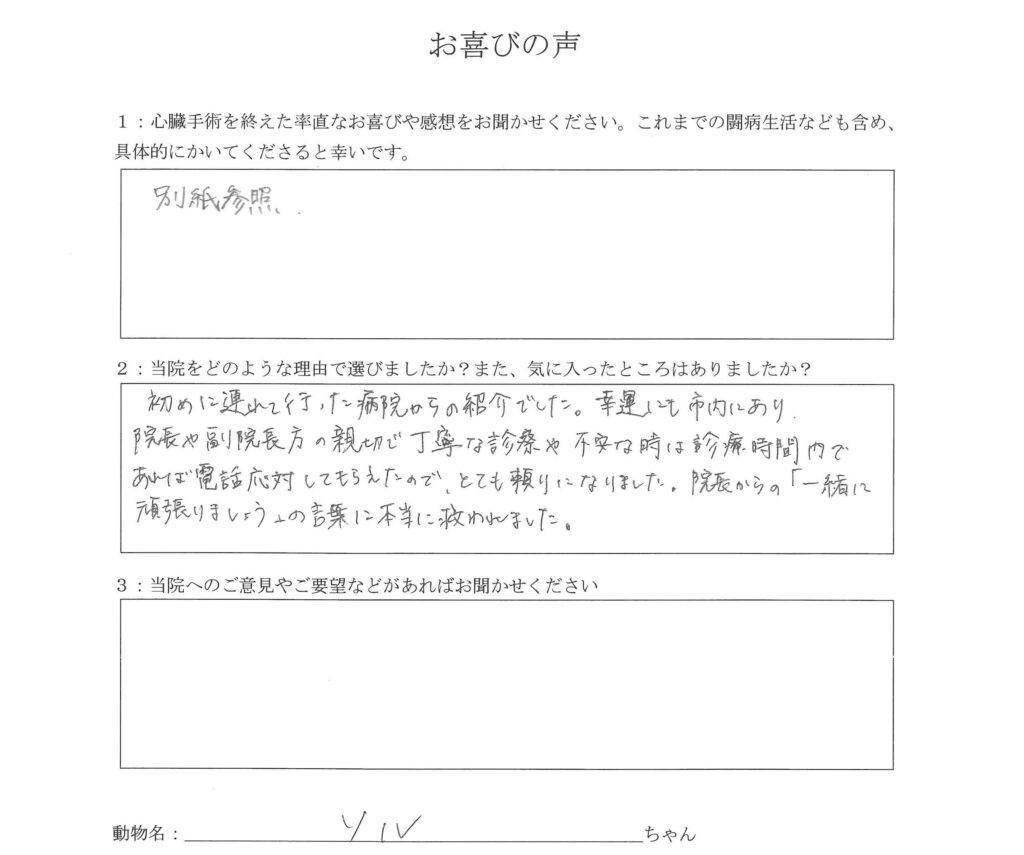 お喜びの声
1：心臓手術を終えた率直なお喜びや感想をお聞かせください。これまでの闘病生活なども含め、
具体的にかいてくださると幸いです。
別紙参照.
2：当院をどのような理由で選びましたか？また、気に入ったところはありましたか？
初めに連れて行った病院からの紹介でした。幸運にも市内にあり
院長や副院長方の親切で丁寧な診療や不安な時は診療時間内で
あれば電話応対してもらえたので、とても頼りになりました。院長からの「一緒に
頑張りましょう」の言葉に本当に救われました。
3：当院へのご意見やご要望などがあればお聞かせください
動物名：ソルちゃん